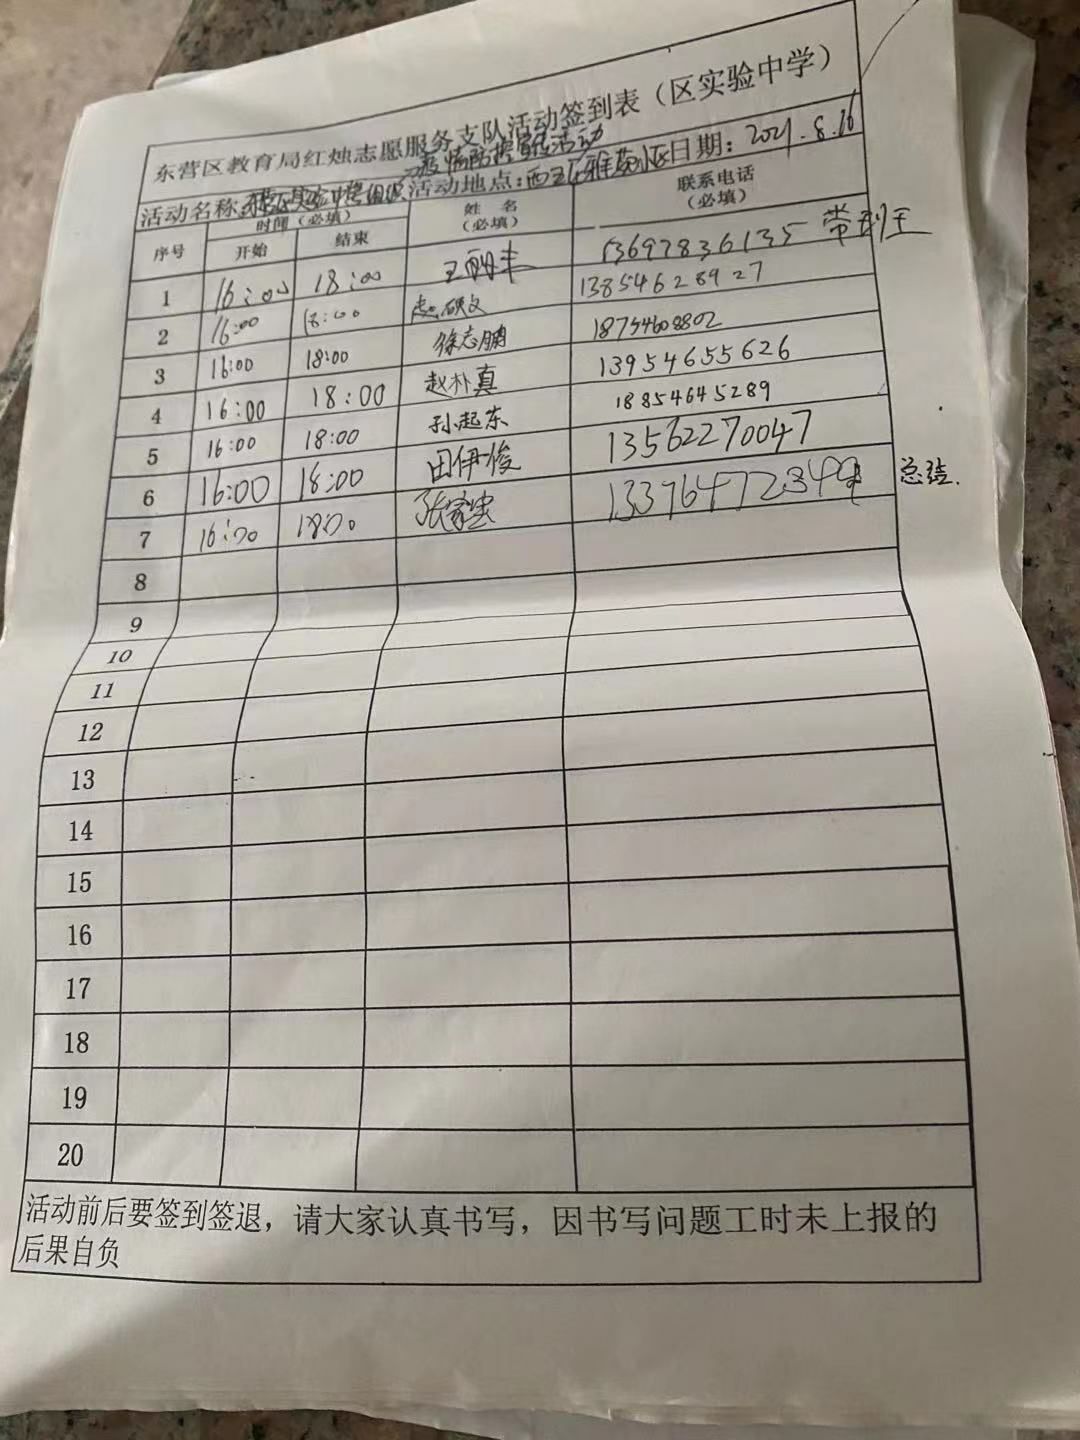 东营区教育局红烛志愿服务支队活动签到表（区实验中学）
疫情防控宣传活动
活动名称：东营区实验中学组织 活动地点：西五区雅苑小区 日期：2021.8.16
序号 时间（必填） 姓名（必填） 联系电话（必填）
开始 结束
1 16:00 18:00 王 13697836135 带到王
2 16:00 18:00 赵硕文 13854628927
3 16:00 18:00 徐志鹏 18754608802
4 16:00 18:00 赵朴真 13954655626
5 16:00 18:00 孙起东 18854645289
6 16:00 18:00 田伊俊 13562270047
7 16:00 18:00 张家 1337647234 总结.
8
9
10
11
12
13
14
15
16
17
18
19
20
活动前后要签到签退，请大家认真书写，因书写问题工时未上报的
后果自负